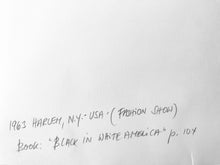 1963 HARLEM, N.Y. - USA - (FASHION SHOW)
BOOK: "BLACK IN WHITE AMERICA" p. 104